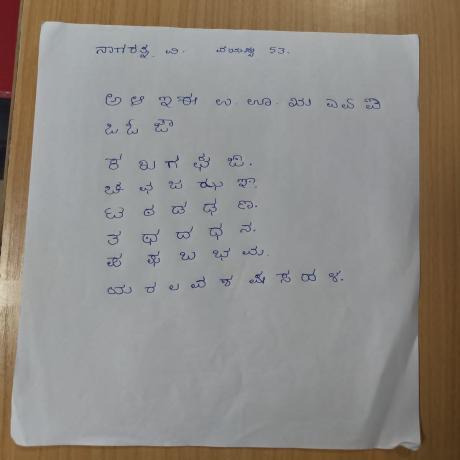 ನಾಗರತ್ನ ವಿ. ವಯಸ್ಸು 53.
ಅ ಆ ಇ ಈ ಉ. ಊ. ಋ ಎ ಏ ಐ
ಒ ಓ ಔ
ಕ ಖ ಗ ಘ ಙ.
ಚ ಛ ಜ ಝ ಞ.
ಟ ಠ ಡ ಢ ಣ.
ತ ಥ ದ ಧ ನ.
ಪ ಫ ಬ ಭ ಮ.
ಯ ರ ಲ ವ ಶ ಷ ಸ ಹ ಳ.